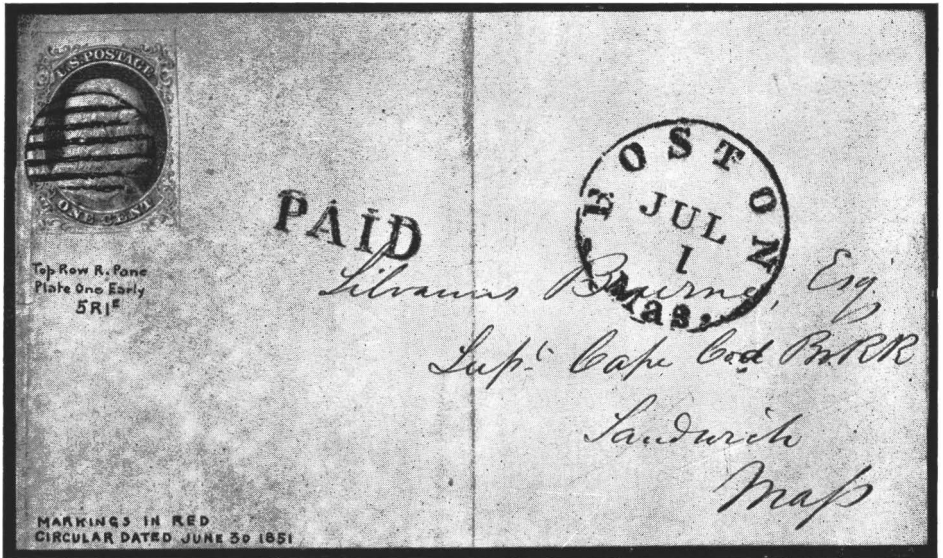 U.S. POSTAGE
ONE CENT
Top Row R. Pane
Plate One Early
5R1ᴱ
PAID
BOSTON
JUL
1
Mas.
Silvanus Bourne, Esq
Supt. Cape Cod Br. RR
Sandwich
Mass
MARKINGS IN RED
CIRCULAR DATED JUNE 30 1851